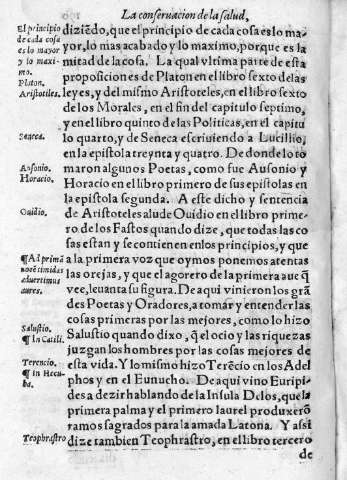 La conseruacion de la salud,
El principio de cada cosa es lo mayor y lo maximo.
Platon.
Aristotiles.
Seneca.
Ausonio.
Horacio.
Ouidio.
¶ Ad primā uocē timidas aduertimus aures.
Salustio.
¶ In Catili.
Terencio.
¶ In Hecuba.
Teophrastro
diziēdo, que el principio de cada cosa es lo ma
yor, lo mas acabado y lo maximo, porque es la
mitad de la cosa. La qual vltima parte de esta
proposiciones de Platon en el libro sexto de las
leyes, y del mismo Aristoteles, en el libro sexto
de los Morales, en el fin del capitulo septimo,
y en el libro quinto de las Politicas, en el capitu
lo quarto, y de Seneca escriuiendo a Lucillio,
en la epistola treynta y quatro. De donde lo to
maron algunos Poetas, como fue Ausonio y
Horacio en el libro primero de sus epistolas en
la epistola segunda. A este dicho y sentencia
de Aristoteles alude Ouidio en el libro prime-
ro de los Fastos quando dize, que todas las co
sas estan y se contienen en los principios, y que
a la primera voz que oymos ponemos atentas
las orejas, y que el agorero de la primera aue q̄
vee, leuanta su figura. De aqui vinieron los grā
des Poetas y Oradores, a tomar y entender las
cosas primeras por las mejores, como lo hizo
Salustio quando dixo, q̄ el ocio y las riquezas
juzgan los hombres por las cosas mejores de
esta vida. Y lo mismo hizo Terēcio en los Adel
phos y en el Eunucho. De aqui vino Euripi-
des a dezir hablando de la Insula Delos, que la
primera palma y el primero laurel produxerō
ramos sagrados para la amada Latona. Y assi
dize tambien Teophrastro, en el libro tercero
de